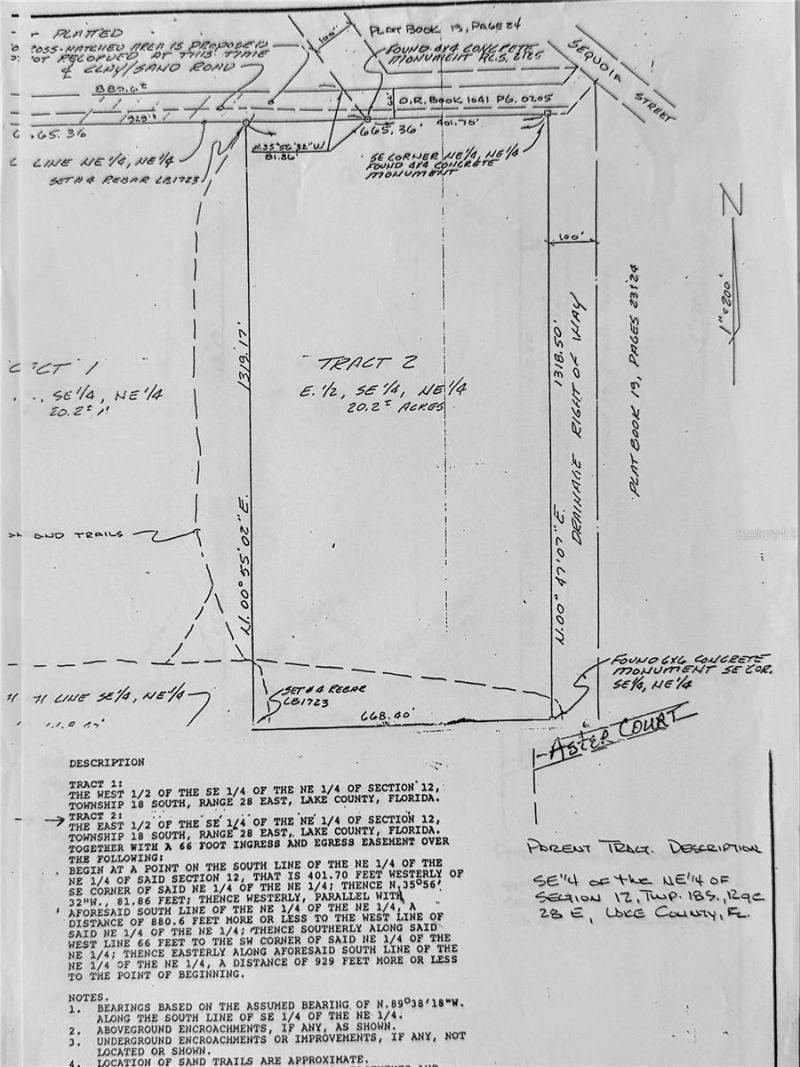 PLATTED
CROSS-HATCHED AREA IS PROPOSED
NOT RECORDED AT THIS TIME
& CLAY/SAND ROAD
880.6±
929'±
665.36
LINE NE 1/4, NE 1/4
SET #4 REBAR LB1723
100'
PLAT BOOK 19, PAGE 24
FOUND 4X4 CONCRETE
MONUMENT R.L.S. 2125
SEQUOIA STREET
O.R. BOOK 1041 PG. 0205
665.36'
401.70'
N.35°56'32"W
81.86'
SE CORNER NE 1/4, NE 1/4
FOUND 4X4 CONCRETE
MONUMENT
100'
N
1"=200'
1319.17'
N.00°55'02"E.
1318.50'
N.00°47'07"E.
DRAINAGE RIGHT OF WAY
PLAT BOOK 19, PAGES 23&24
TRACT 2
E. 1/2, SE 1/4, NE 1/4
20.2± ACRES
CT 1
SE 1/4, NE 1/4
20.2±
AND TRAILS
LINE SE 1/4, NE 1/4
SET #4 REBAR
LB1723
668.40'
FOUND 6X6 CONCRETE
MONUMENT SE COR.
SE 1/4, NE 1/4
ASTER COURT
DESCRIPTION
TRACT 1:
THE WEST 1/2 OF THE SE 1/4 OF THE NE 1/4 OF SECTION 12,
TOWNSHIP 18 SOUTH, RANGE 28 EAST, LAKE COUNTY, FLORIDA.
TRACT 2:
THE EAST 1/2 OF THE SE 1/4 OF THE NE 1/4 OF SECTION 12,
TOWNSHIP 18 SOUTH, RANGE 28 EAST, LAKE COUNTY, FLORIDA.
TOGETHER WITH A 66 FOOT INGRESS AND EGRESS EASEMENT OVER
THE FOLLOWING:
BEGIN AT A POINT ON THE SOUTH LINE OF THE NE 1/4 OF THE
NE 1/4 OF SAID SECTION 12, THAT IS 401.70 FEET WESTERLY OF
SE CORNER OF SAID NE 1/4 OF THE NE 1/4; THENCE N.35°56'
32"W., 81.86 FEET; THENCE WESTERLY, PARALLEL WITH
AFORESAID SOUTH LINE OF THE NE 1/4 OF THE NE 1/4, A
DISTANCE OF 880.6 FEET MORE OR LESS TO THE WEST LINE OF
SAID NE 1/4 OF THE NE 1/4; THENCE SOUTHERLY ALONG SAID
WEST LINE 66 FEET TO THE SW CORNER OF SAID NE 1/4 OF THE
NE 1/4; THENCE EASTERLY ALONG AFORESAID SOUTH LINE OF THE
NE 1/4 OF THE NE 1/4, A DISTANCE OF 929 FEET MORE OR LESS
TO THE POINT OF BEGINNING.
PARENT TRACT. DESCRIPTION
SE 1/4 OF the NE 1/4 OF
SECTION 12, TWP. 18S., RGE
28 E, LAKE COUNTY, FL.
NOTES.
1. BEARINGS BASED ON THE ASSUMED BEARING OF N.89°38'18"W.
ALONG THE SOUTH LINE OF SE 1/4 OF THE NE 1/4.
2. ABOVEGROUND ENCROACHMENTS, IF ANY, AS SHOWN.
3. UNDERGROUND ENCROACHMENTS OR IMPROVEMENTS, IF ANY, NOT
LOCATED OR SHOWN.
4. LOCATION OF SAND TRAILS ARE APPROXIMATE.